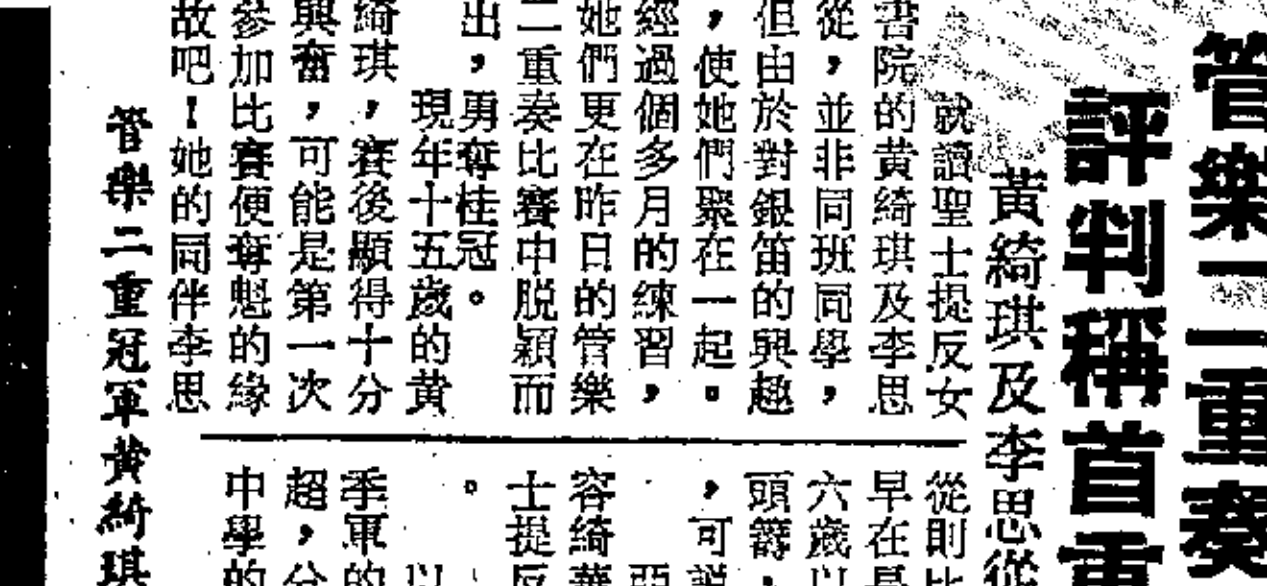 管樂二重奏
評判稱首重
黃綺琪及李思從
就讀聖士提反女
書院的黄綺琪及李思
從，並非同班同學，
但由於對銀笛的興趣
，使她們聚在一起。
經過個多月的練習，
她們更在昨日的管樂
二重奏比賽中脱穎而
出，勇奪桂冠。
現年十五歲的黄
綺琪，賽後顯得十分
興奮，可能是第一次
參加比賽便奪魁的緣
故吧！她的同伴李思
從則比
早在長
六歲以
頭籌，
，可說
容綺華
士提反
。
以
季軍的
超，分
中學的
管樂二重冠軍黄綺琪